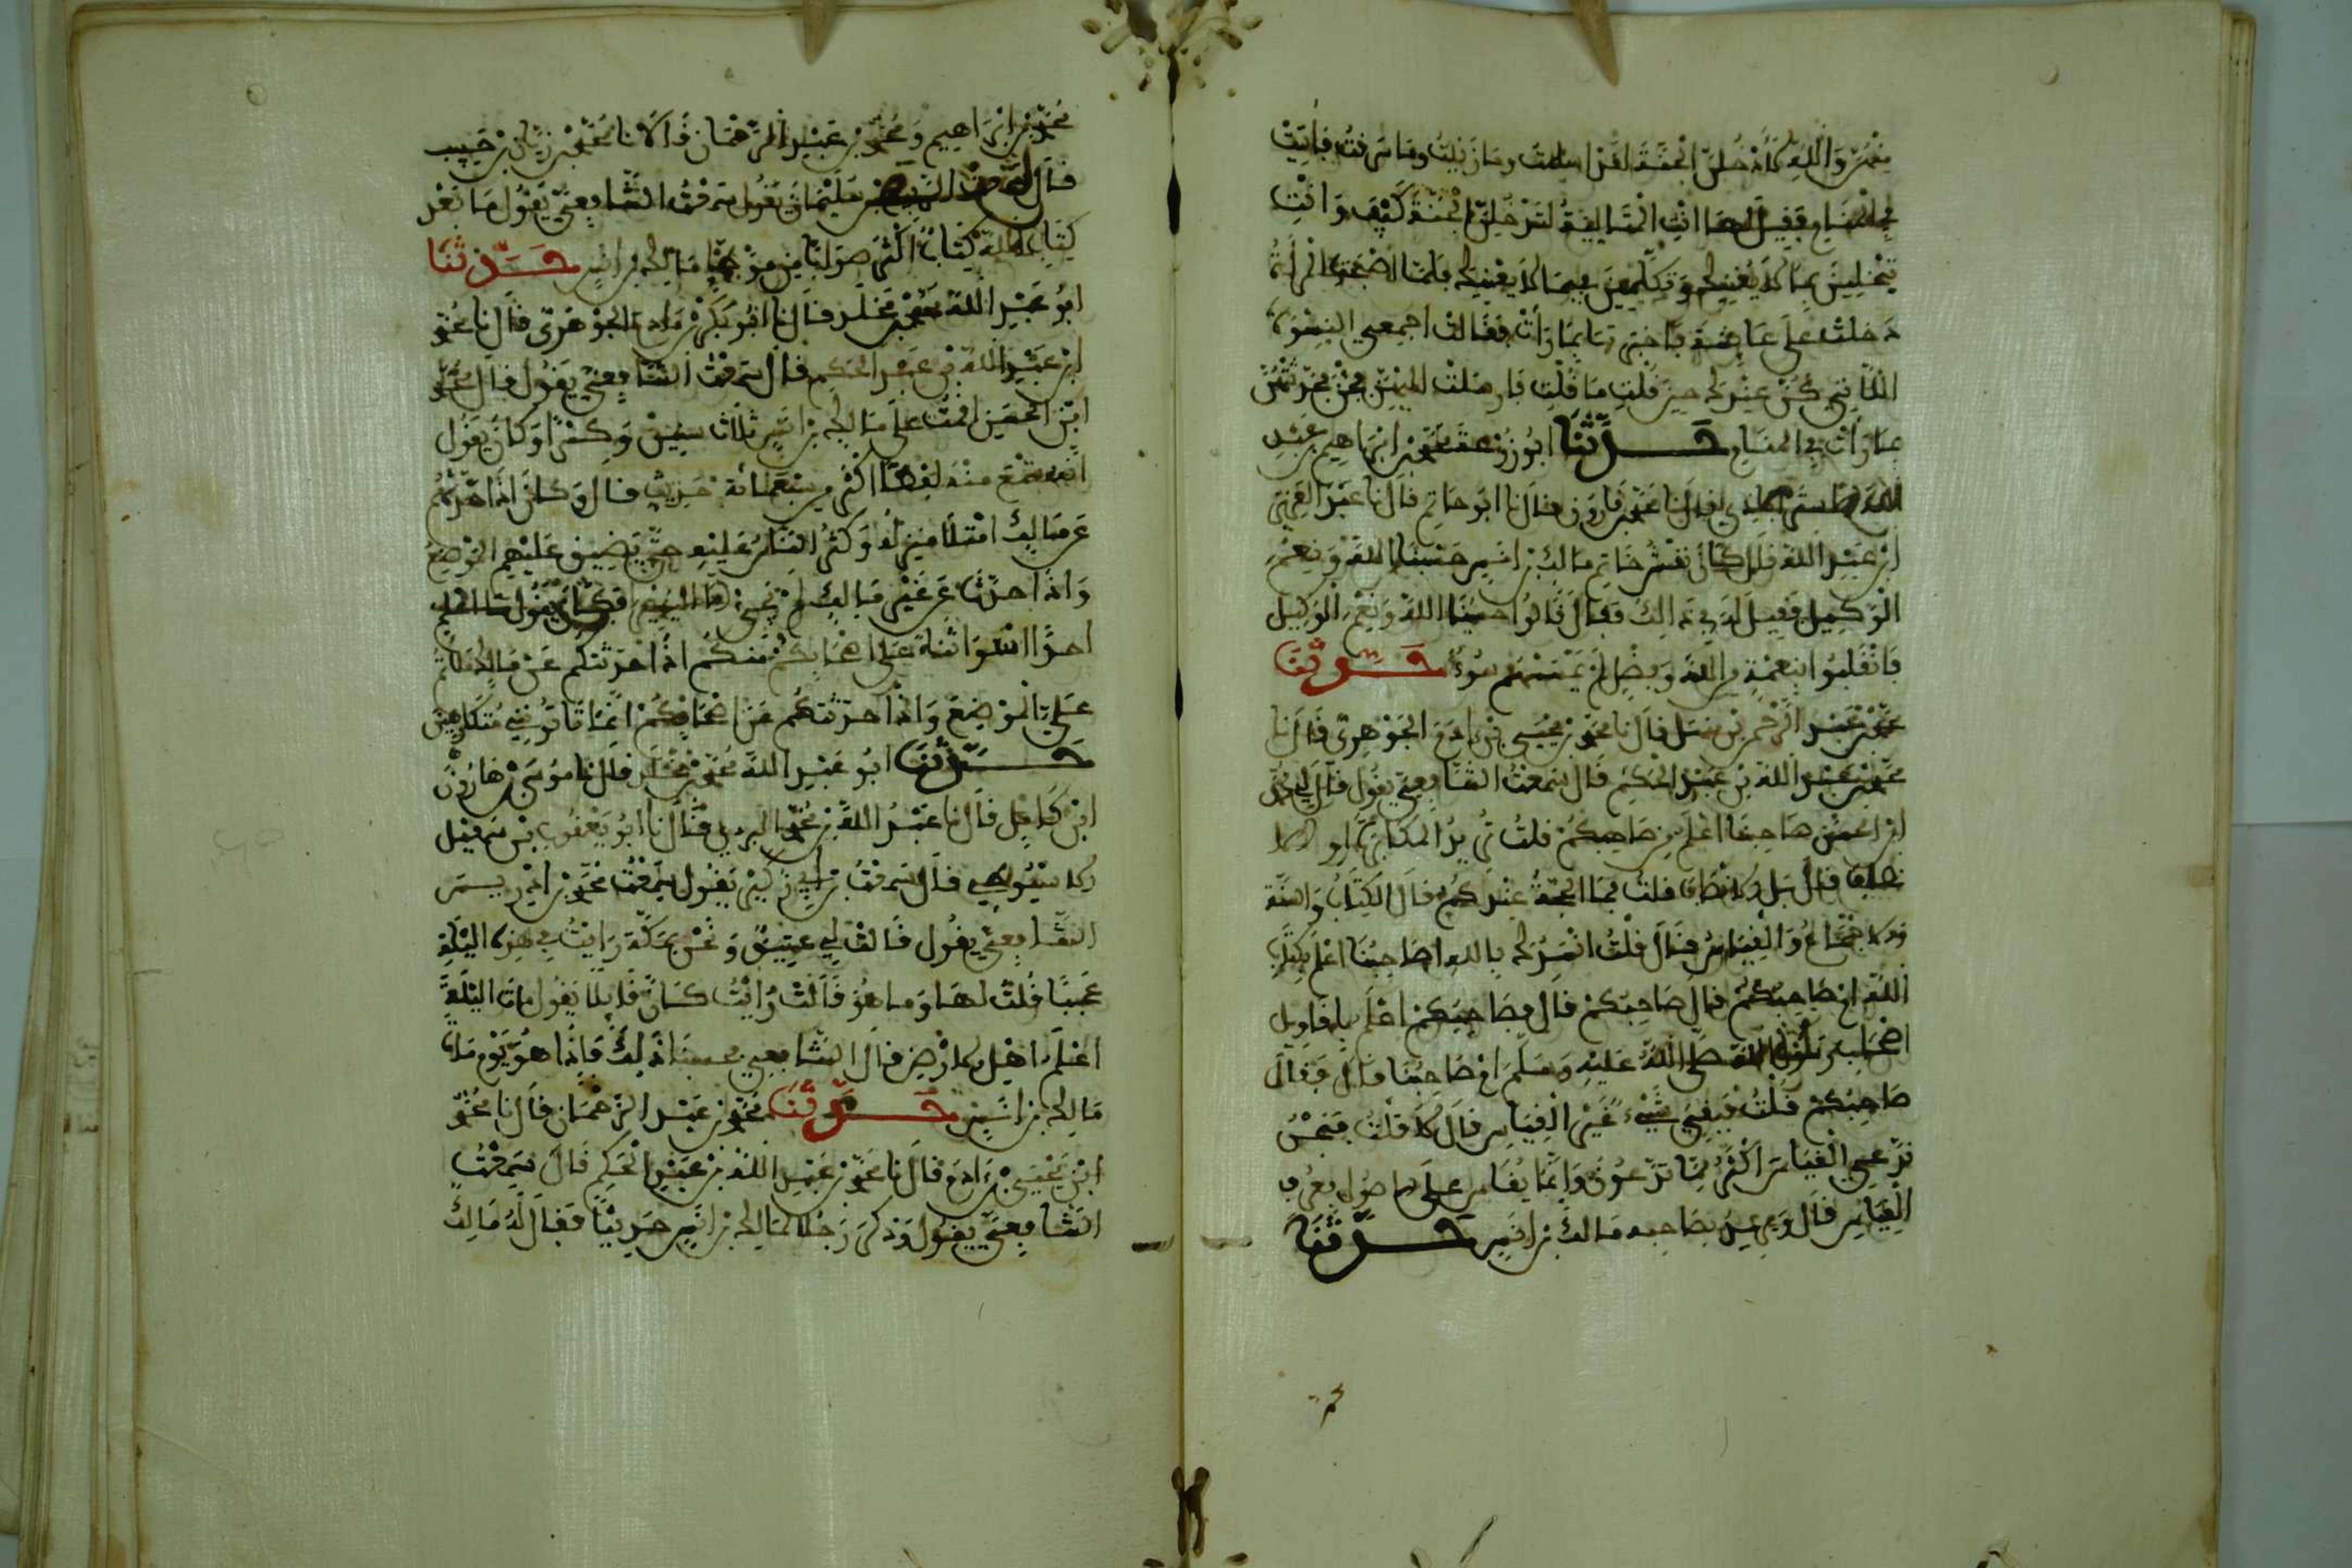 منهن والله لأدخلن الجنة لقد أسلمت وما زنيت وما سرقت فأتيت
في المنام فقيل لها أنت المتألية لتدخلن الجنة كيف وأنت
تبخلين بما لا يغنيك وتكلمين فيما لا يعنيك فلما أصبحت المرأة
دخلت على عائشة فأخبرتها بما رأت فقالت اجمعي النسوة
اللاتي كن عندك حين قلت ما قلت فأرسلت إليهن فجئن فحدثتهن
بما رأت في المنام حدثنا أبو زرعة محمد بن إبراهيم بن عبد
الله قال نا محمد بن قارون قال نا أبو حاتم قال نا عبد العزيز
ابن عبد الله قال كان نقش خاتم مالك بن أنس حسبنا الله ونعم
الوكيل فقيل له في ذلك فقال قالوا حسبنا الله ونعم الوكيل
فانقلبوا بنعمة من الله وفضل لم يمسسهم سوء حدثنا
محمد بن عبد الرحمن بن سهل قال نا محمد بن يحيى بن آدم الجوهري قال نا
محمد بن عبد الله بن عبد الحكم قال سمعت الشافعي يقول قال لي محمد
ابن الحسن صاحبنا أعلم من صاحبكم قلت تريد المكابرة أو الإ
نصاف قال بل الإنصاف قلت فما الحجة عندكم قال الكتاب والسنة
والإجماع والقياس قال قلت أنشدك بالله أصاحبنا أعلم بكتاب
الله أم صاحبكم قال صاحبكم قال فصاحبكم أعلم بأقاويل
أصحاب رسول الله صلى الله عليه وسلم أم صاحبنا قال فقال
صاحبكم قلت فبقي شيء غير القياس قال لا قلت فنحن
ندعي القياس أكثر مما تدعون وإنما يقاس على الأصول فيعرف
القياس قال ويريد بصاحبه مالك بن أنس حدثنا
محمد بن إبراهيم ومحمد بن عبد الرحمان قالا نا محمد بن زبان بن حبيب
قال سمعت الربيع بن سليمان يقول سمعت الشافعي يقول ما بعد
كتاب الله كتاب أكثر صوابا من موطأ مالك بن أنس حدثنا
أبو عبد الله محمد بن مخلد قال نا أبو بكر بن آدم الجوهري قال نا محمد
ابن عبد الله بن عبد الحكم قال سمعت الشافعي يقول قال محمد
ابن الحسن أقمت على مالك بن أنس ثلاث سنين وكسرا وكان يقول
إنه سمع منه لفظا أكثر من سبعمائة حديث قال وكان إذا حدثهم
عن مالك امتلأ منزله وكثر الناس عليه حتى يضيق عليهم الموضع
وإذا حدث عن غير مالك لم يجئ إلا اليسير فكان يقول ما أعلم
أحدا أسوأ ثناء على أصحابكم منكم إذا حدثتكم عن مالك ملأتم
علي الموضع وإذا حدثتكم عن أصحابكم إنما تأتوني متكارهين
حدثنا أبو عبد الله محمد بن مخلد قال نا موسى بن هارون
ابن قال نا عبد الله بن محمد قال نا أبو يعقوب بن
قال سمعت يقول سمعت محمد بن إدريس
الشافعي يقول قالت لي عمتي ونحن بمكة رأيت في هذه الليلة
عجبا قلت لها وما هو قالت رأيت كأن قائلا يقول مات الليلة
أعلم أهل الأرض قال الشافعي فحسبنا ذلك فإذا هو يوم مات
مالك بن أنس حدثنا محمد بن عبد الرحمان قال نا محمد
ابن يحيى بن آدم قال نا محمد بن عبد الله بن عبد الحكم قال سمعت
الشافعي يقول وذكر رجل لمالك بن أنس حديثا فقال له مالك